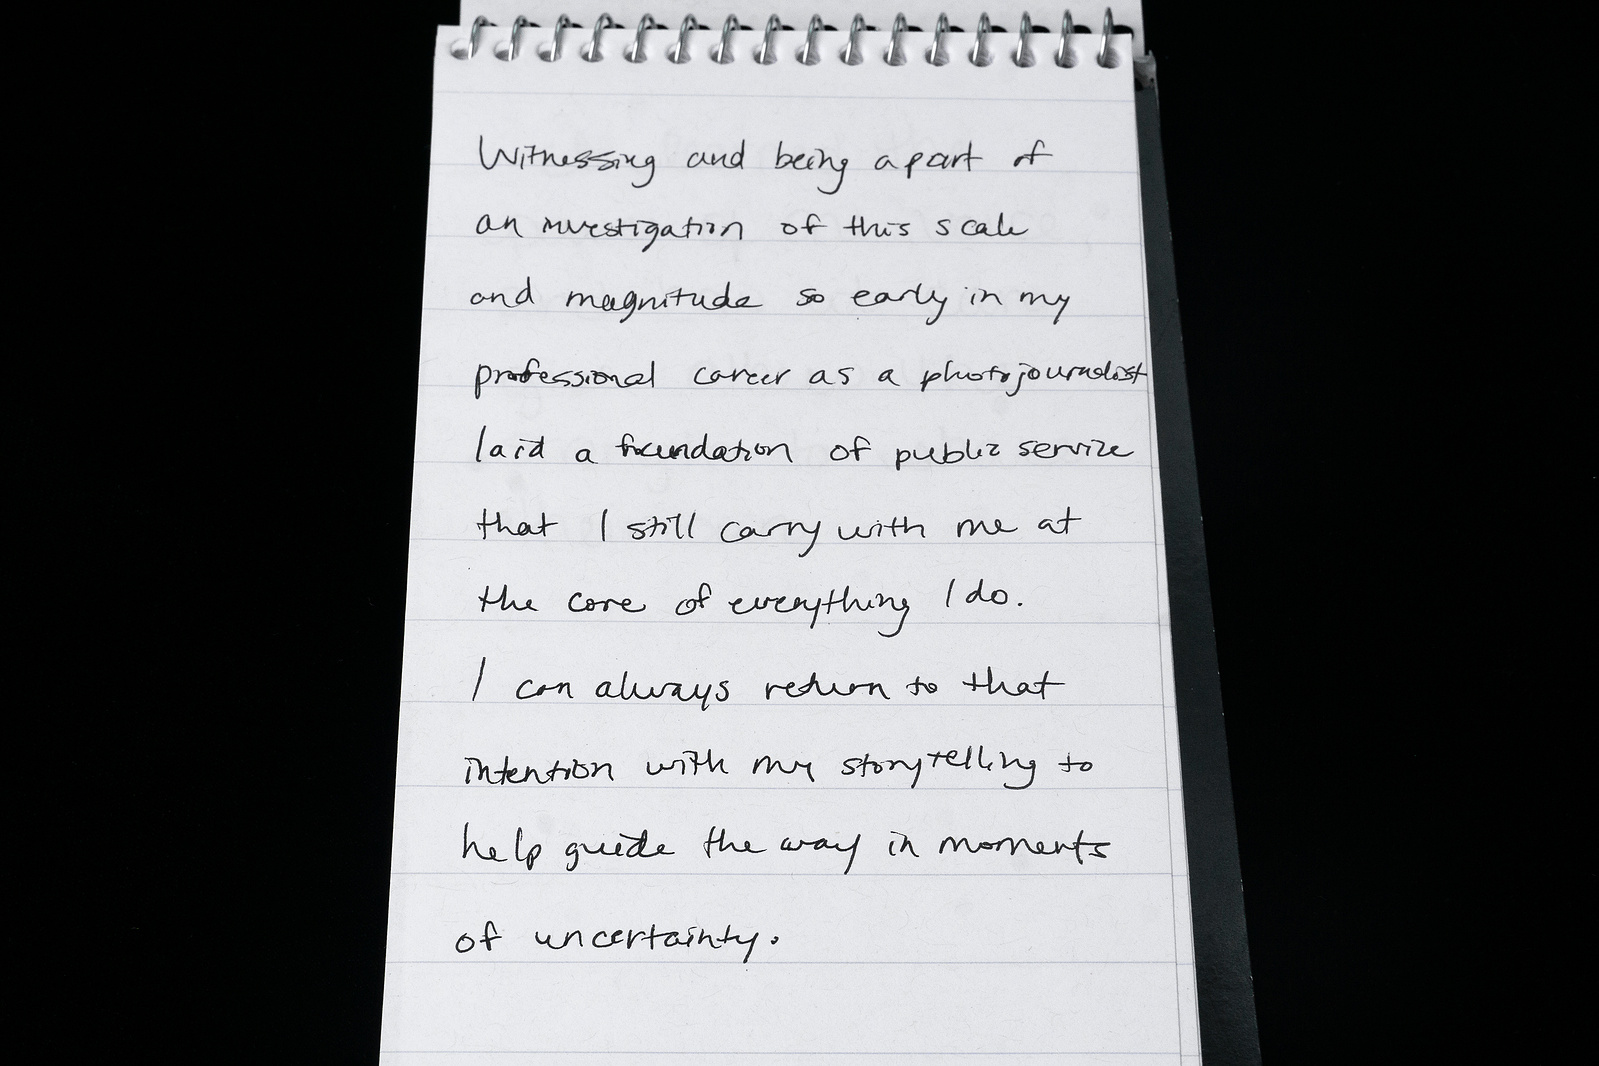 Witnessing and being a part of
an investigation of this scale
and magnitude so early in my
professional career as a photojournalist
laid a foundation of public service
that I still carry with me at
the core of everything I do.
I can always return to that
intention with my storytelling to
help guide the way in moments
of uncertainty.